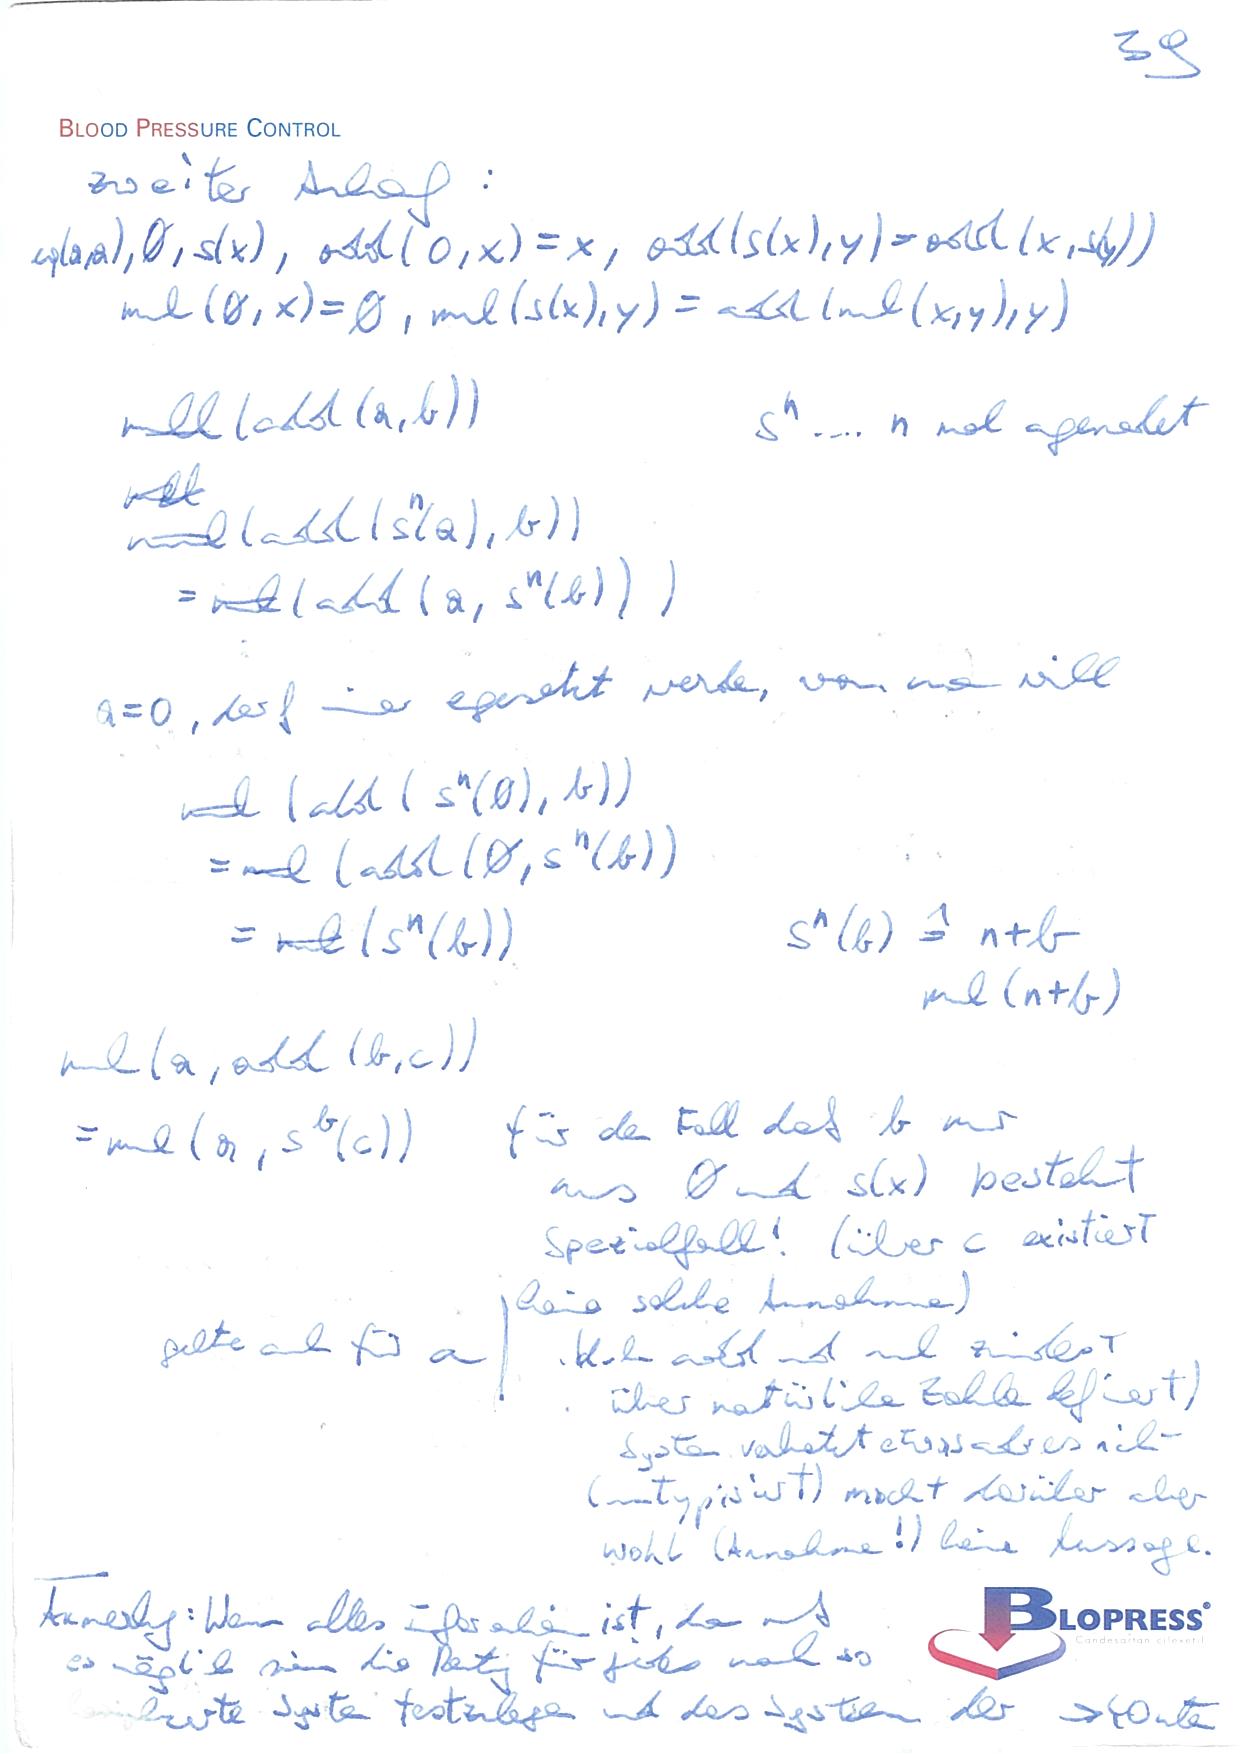 39
BLOOD PRESSURE CONTROL
zweiter Anlauf:
eq(a,a), ∅, s(x), add(0,x)=x, add(s(x),y)=add(x,s(y))
mul(∅,x)=∅, mul(s(x),y)=add(mul(x,y),y)
(add(a,b))
sⁿ .... n mal
(add(sⁿ(a),b))
= (add(a, sⁿ(b)))
a=0, darf werde, wenn man will
mul (add(sⁿ(∅), b))
= mul (add(∅, sⁿ(b))
= mul (sⁿ(b))
sⁿ(b) ≙ n+b
mul (n+b)
mul(a, add(b,c))
= mul(a, sᵇ(c))
für den Fall daß b nur
aus ∅ und s(x) besteht
Spezialfall! (über c existiert
keine solche Annahme)
gelte auch für a
add und mul zumindest
über natürliche Zahle definiert)
System es nicht
(untypisiert) macht darüber aber
wohl (Annahme!) keine Aussage.
Anmerkung: Wenn alles ist, dann muß
es möglich sein die für jedes noch so
System festzulegen und das System der → 40 unten
BLOPRESS®
Candesartan cilexetil